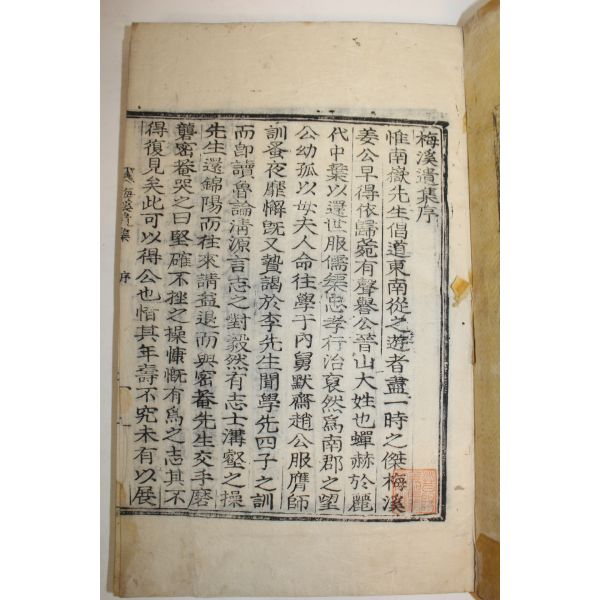 梅溪遺集序
惟南嶽先生倡道東南從之遊者盡一時之傑梅溪
姜公早得依歸菀有聲譽公晉山大姓也蟬赫於麗
代中葉以還世服儒渠忠孝行治裒然爲南郡之望
公幼孤以母夫人命往學于內舅默齋趙公服膺師
訓蚤夜靡懈旣又贄謁於李先生聞學先四子之訓
而卽讀魯論淸源言志之對毅然有志士溝壑之操
先生還錦陽而往來請益退而與密菴先生交手磨
礱密菴哭之曰堅確不挫之操慷慨有爲之志其不
得復見矣此可以得公也惜其年壽不究未有以展
梅溪遺集
序
一